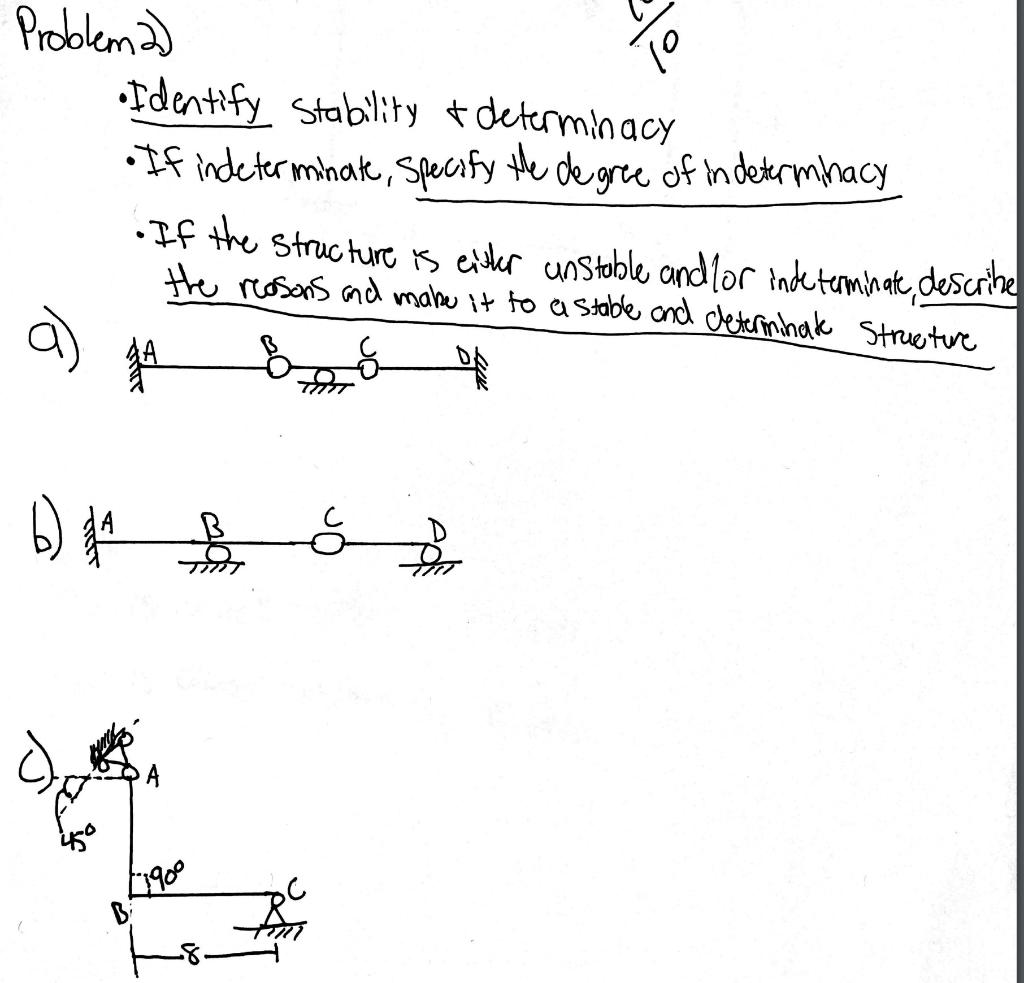 Problem 2)
10
• Identify stability + determinacy
• If indeterminate, specify the degree of indeterminacy
• If the structure is either unstable and/or indeterminate, describe
the reasons and make it to a stable and determinate structure
a)
A B C D
b)
A B C D
c)
A
45°
90°
C
B
8